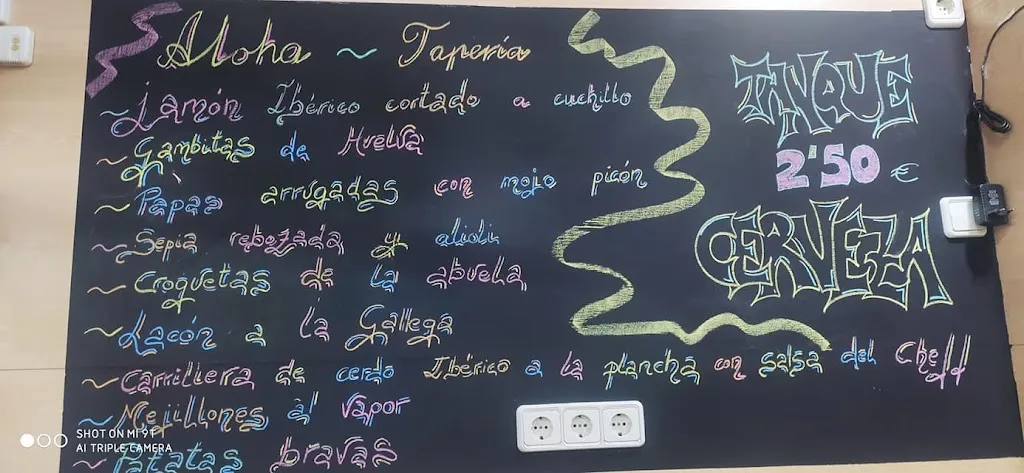 Aloha ~ Tapería
~ Jamón Ibérico cortado a cuchillo
~ Gambitas de Huelva
~ Papas arrugadas con mojo picón
~ Sepia rebozada y alioli
~ Croquetas de la abuela
~ Lacón a la Gallega
~ Carrillera de cerdo Ibérico a la plancha con salsa del Cheff
~ Mejillones al vapor
~ Patatas bravas
TANQUE
2'50 €
CERVEZA
SHOT ON MI 9T
AI TRIPLE CAMERA